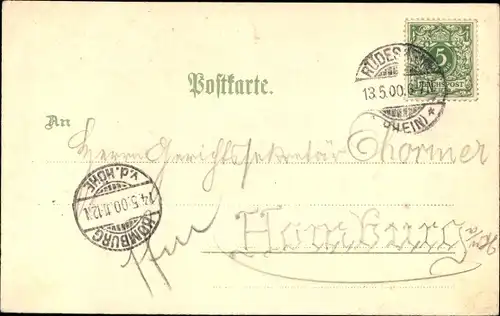 RÜDESHEIM
13.5.00.
(RHEIN) *
5
REICHSPOST
Postkarte.
An
Herrn Gerichtssekretär Thormer
Homburg
HOMBURG
14.5.00.11-12V.
v.d. HÖHE